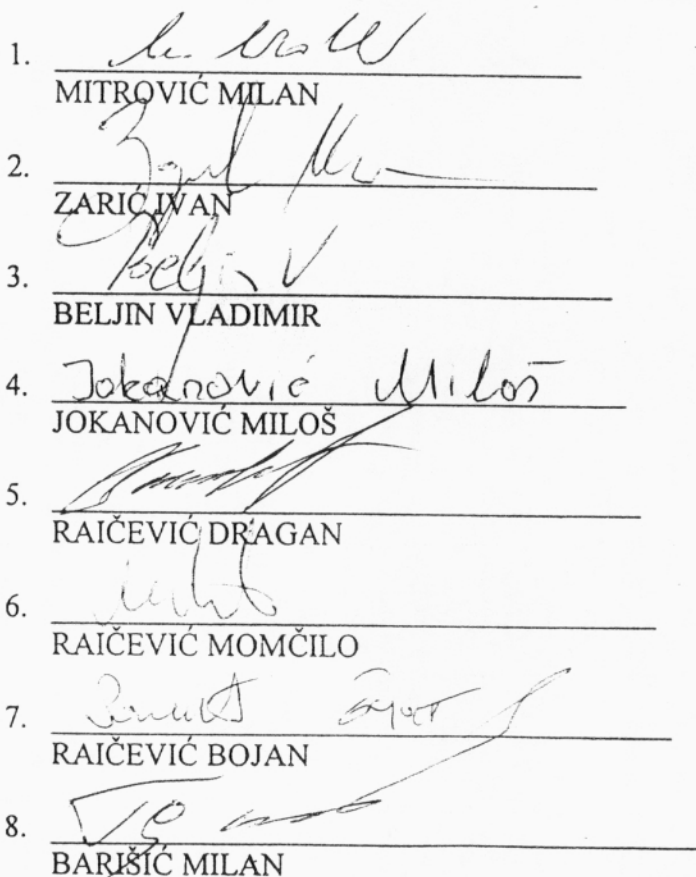 1.
MITROVIĆ MILAN
2.
ZARIĆ IVAN
3. Beljin V
BELJIN VLADIMIR
4. Jokanović Miloš
JOKANOVIĆ MILOŠ
5.
RAIČEVIĆ DRAGAN
6.
RAIČEVIĆ MOMČILO
7.
RAIČEVIĆ BOJAN
8.
BARIŠIĆ MILAN